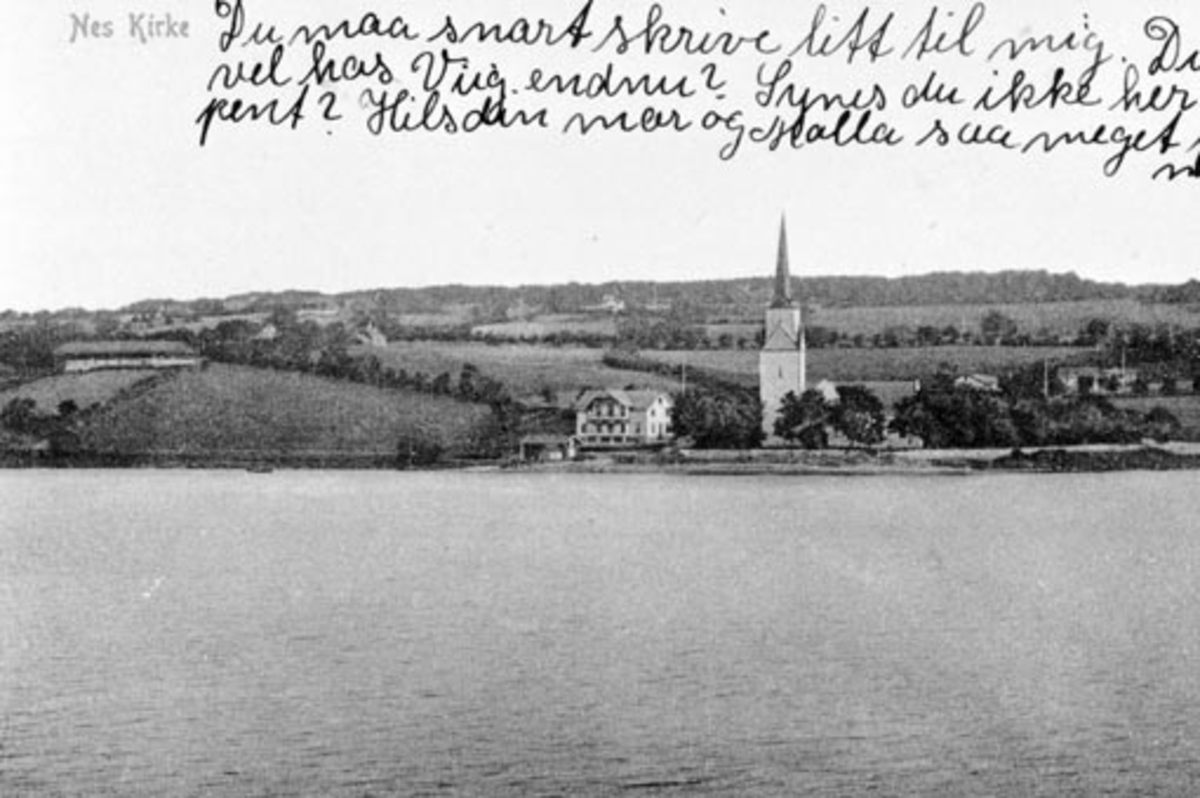 Nes Kirke
Du maa snart skrive litt til mig. Du
vel hos Viig endnu? Synes du ikke her
pent? Hils din mor og Malla saa meget